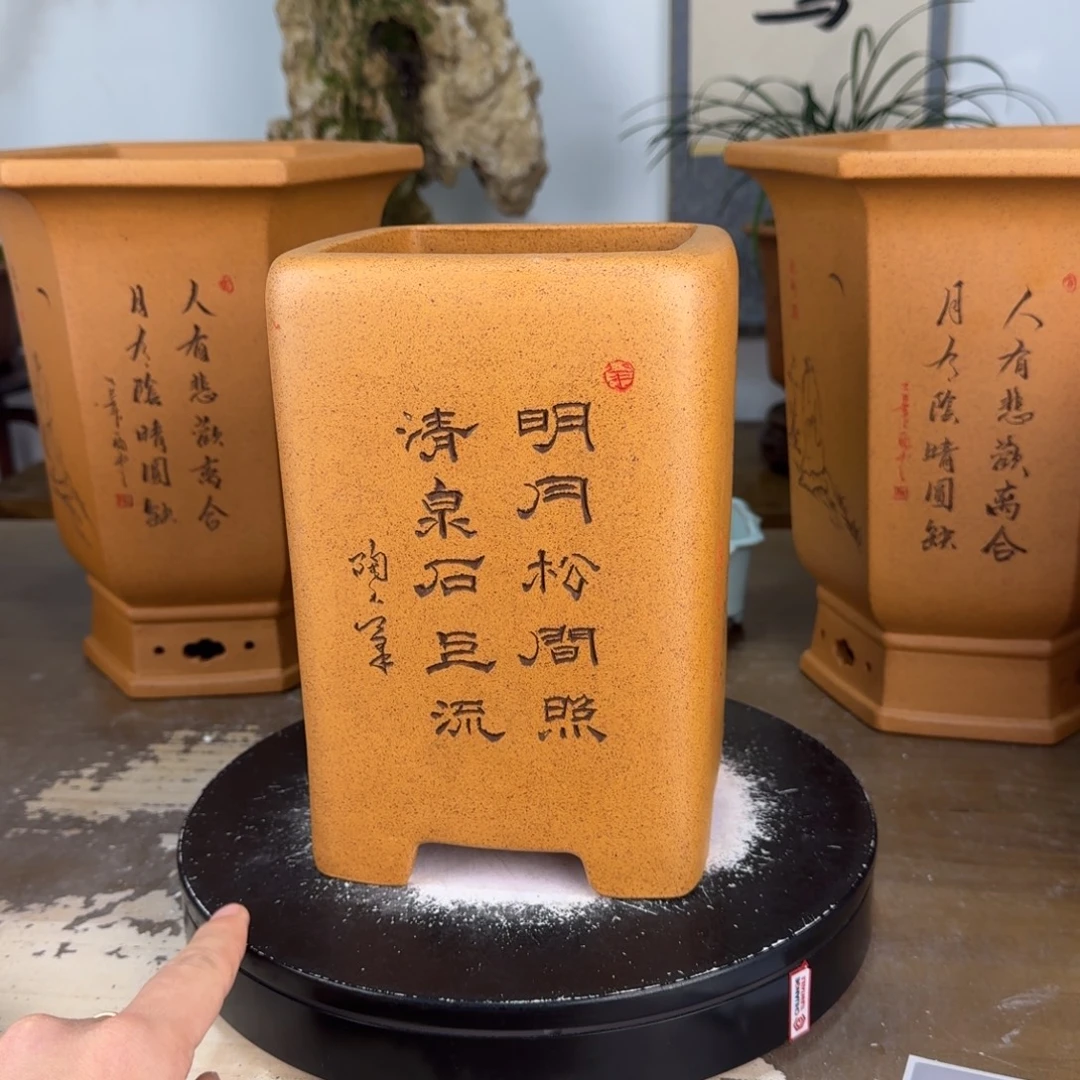 人有悲歡离合
月有陰晴圓缺
明月松間照
清泉石巨流
人有悲歡离合
月有陰晴圓缺